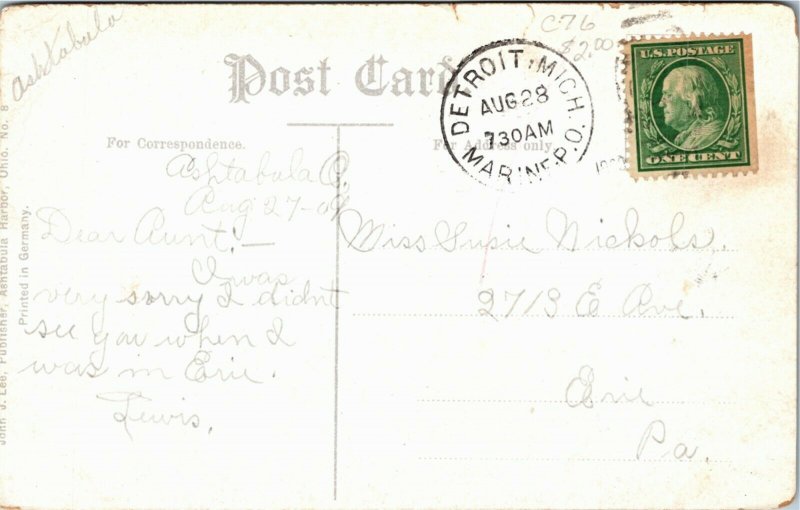 Ashtabula
C76
$2.00
Post Card
For Correspondence.
For Address only.
DETROIT, MICH.
AUG 28
730AM
MARINE P.O.
U.S. POSTAGE
ONE CENT
Ashtabula O.
Aug 27-09
Dear Aunt:—
I was
very sorry I didnt
see you when I
was in Erie.
Lewis,
Miss Susie Nickols.
2713 E Ave.
Erie
Pa.
John J. Lee, Publisher, Ashtabula Harbor, Ohio. No. 8
Printed in Germany.